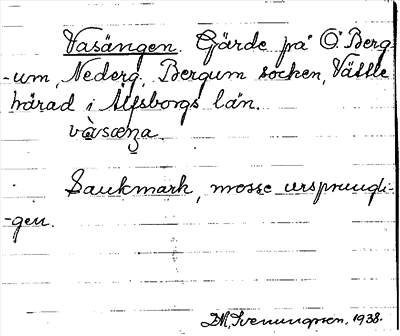 Vasängen. Gärde på Ö. Berg-
-um, Nederg. Bergum socken, Vättle
härad i Älfsborgs län.
vàsæŋa.
Sankmark, mosse ursprungli-
-gen.
1938.